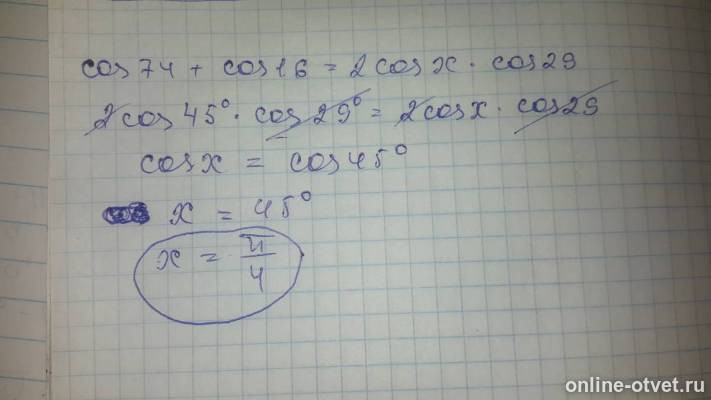 cos 74 + cos 16 = 2 cos x · cos 29
2 cos 45° · cos 29° = 2 cos x · cos 29
cos x = cos 45°
x = 45°
x = π/4
online-otvet.ru